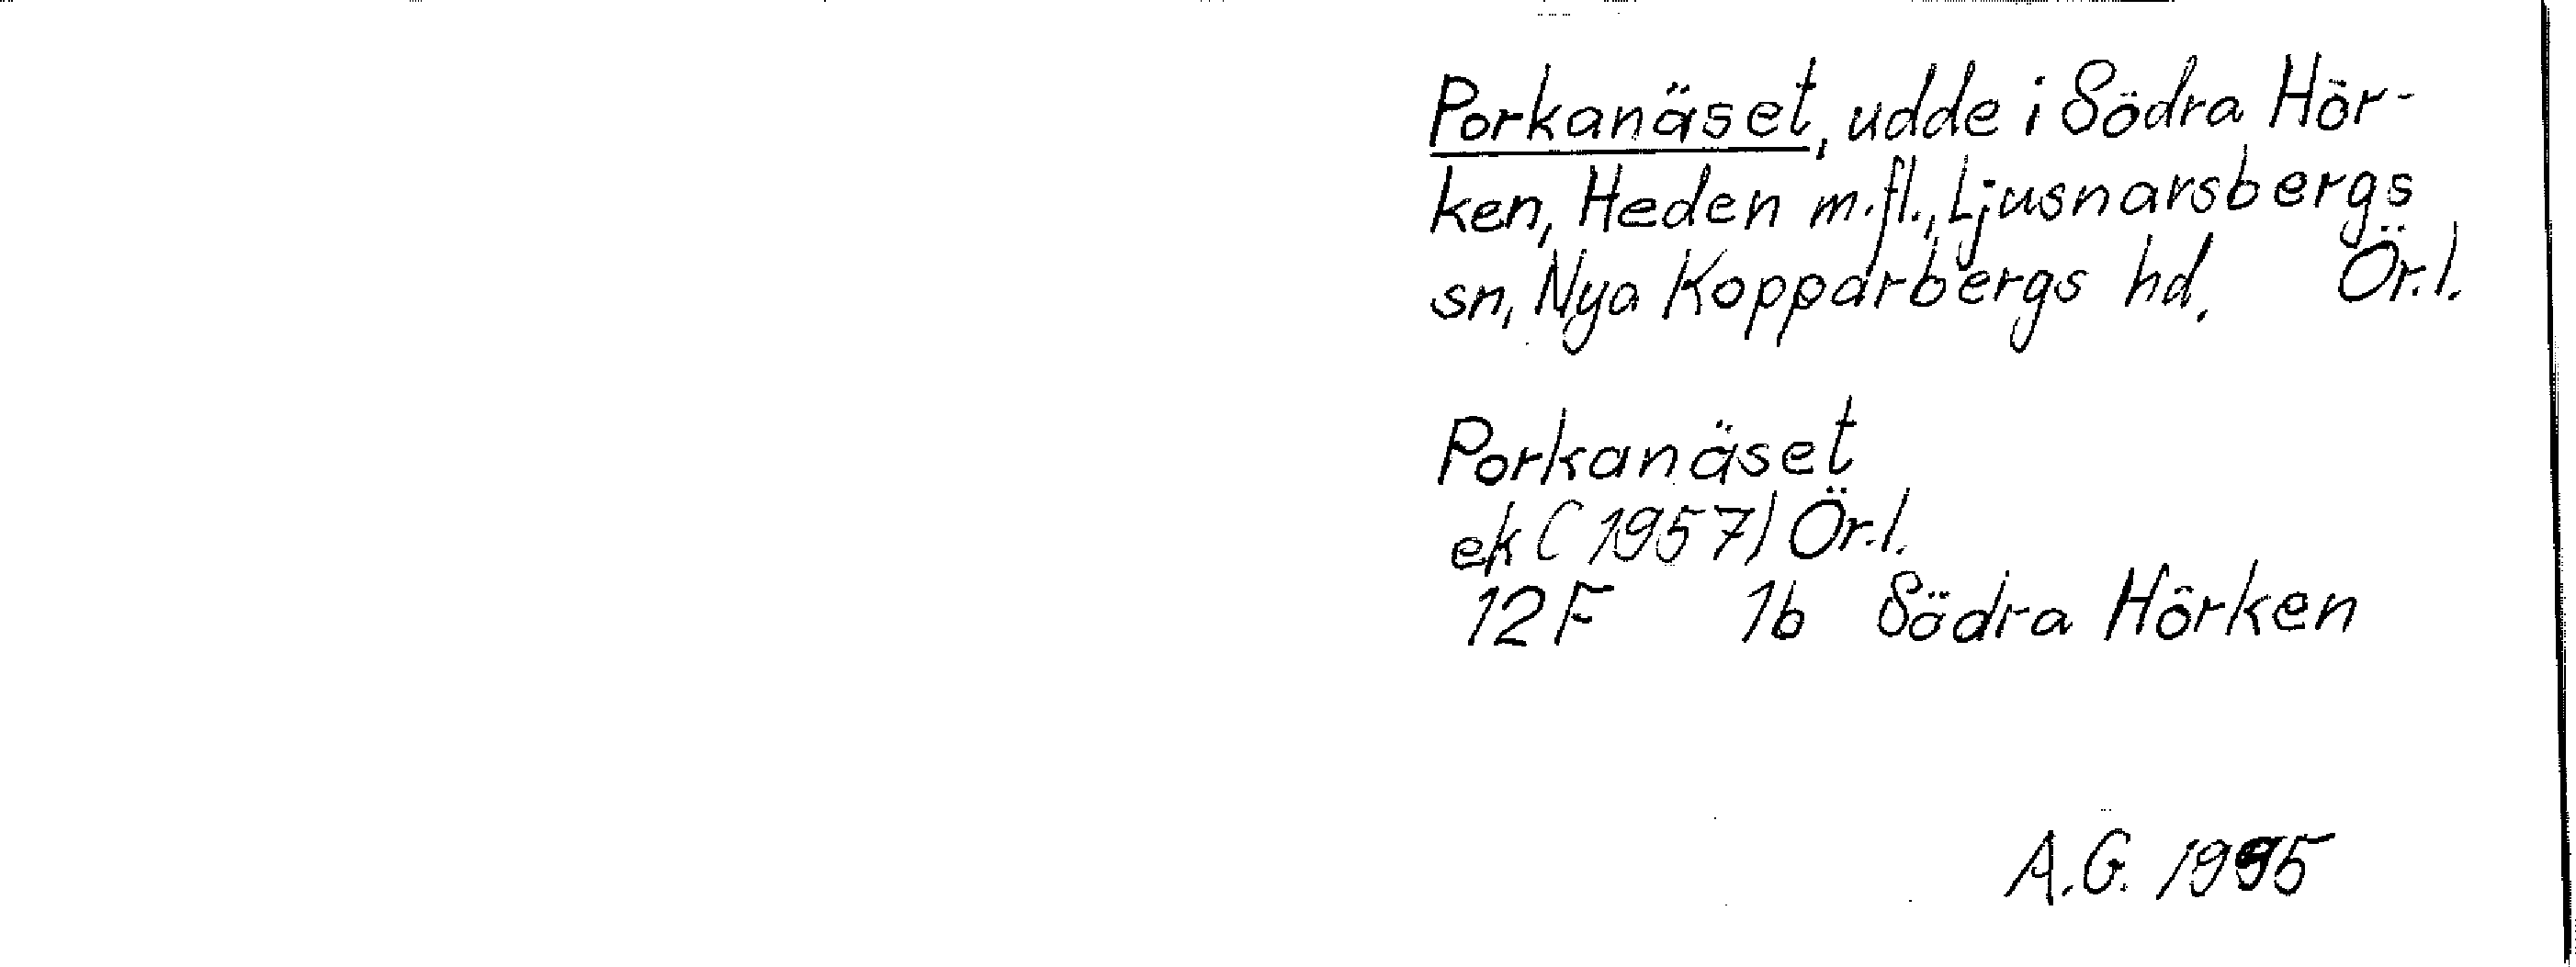 Porkanäset, udde i Södra Hör-
ken, Heden m.fl., Ljusnarsbergs
sn, Nya Kopparbergs hd. Ör.l.
Porkanäset
ek (1957) Ör.l.
12F 1b Södra Hörken
A.G. 1995